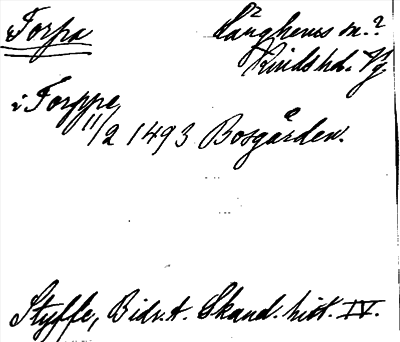 Torpa
Långhems sn.?
Kinds hd. Vg
i Torppe
11/2 1493 Bosgården.
Styffe, Bidr. t. Skand. hist. IV.